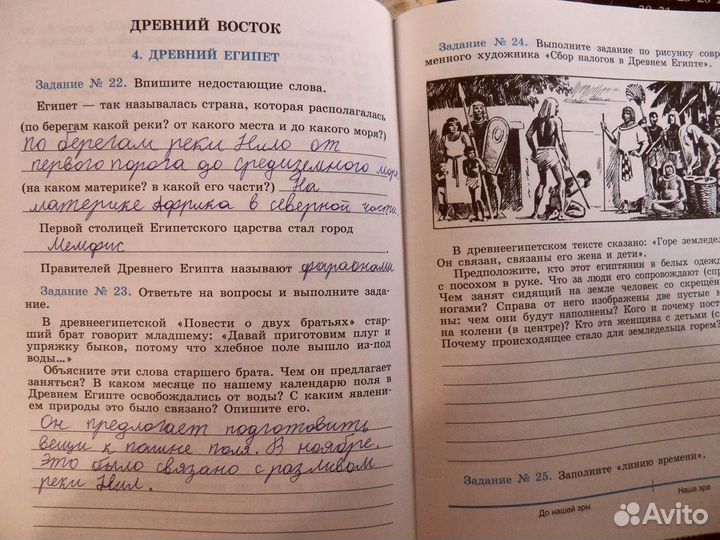 ДРЕВНИЙ ВОСТОК
4. ДРЕВНИЙ ЕГИПЕТ
Задание № 22. Впишите недостающие слова.
Египет — так называлась страна, которая располагалась
(по берегам какой реки? от какого места и до какого моря?)
по берегам реки Нило от
первого порога до средиземного моря
(на каком материке? в какой его части?) На
материке Африка в северной части.
Первой столицей Египетского царства стал город
Мемфис
Правителей Древнего Египта называют фараонами
Задание № 23. Ответьте на вопросы и выполните зада-
ние.
В древнеегипетской «Повести о двух братьях» стар-
ший брат говорит младшему: «Давай приготовим плуг и
упряжку быков, потому что хлебное поле вышло из-под
воды...»
Объясните эти слова старшего брата. Чем он предлагает
заняться? В каком месяце по нашему календарю поля в
Древнем Египте освобождались от воды? С каким явлени-
ем природы это было связано? Опишите его.
Он предлогает подготовить
вещи к пашне поля. В ноябре.
Это было связано с разливом
реки Нил.
Задание № 24. Выполните задание по рисунку совре-
менного художника «Сбор налогов в Древнем Египте».
В древнеегипетском тексте сказано: «Горе земледел
Он связан, связаны его жена и дети».
Предположите, кто этот египтянин в белых одежд
с посохом в руке. Что за люди его сопровождают (сп
Чем занят сидящий на земле человек со скрещён
ногами? Справа от него изображены две пустые к
ны: чем они будут наполнены? Кого и почему пост
на колени (в центре)? Кто эта женщина с детьми (с
Почему происходящее стало для земледельца горем?
Задание № 25. Заполните «линию времени».
До нашей эры
Наша эра
Avito